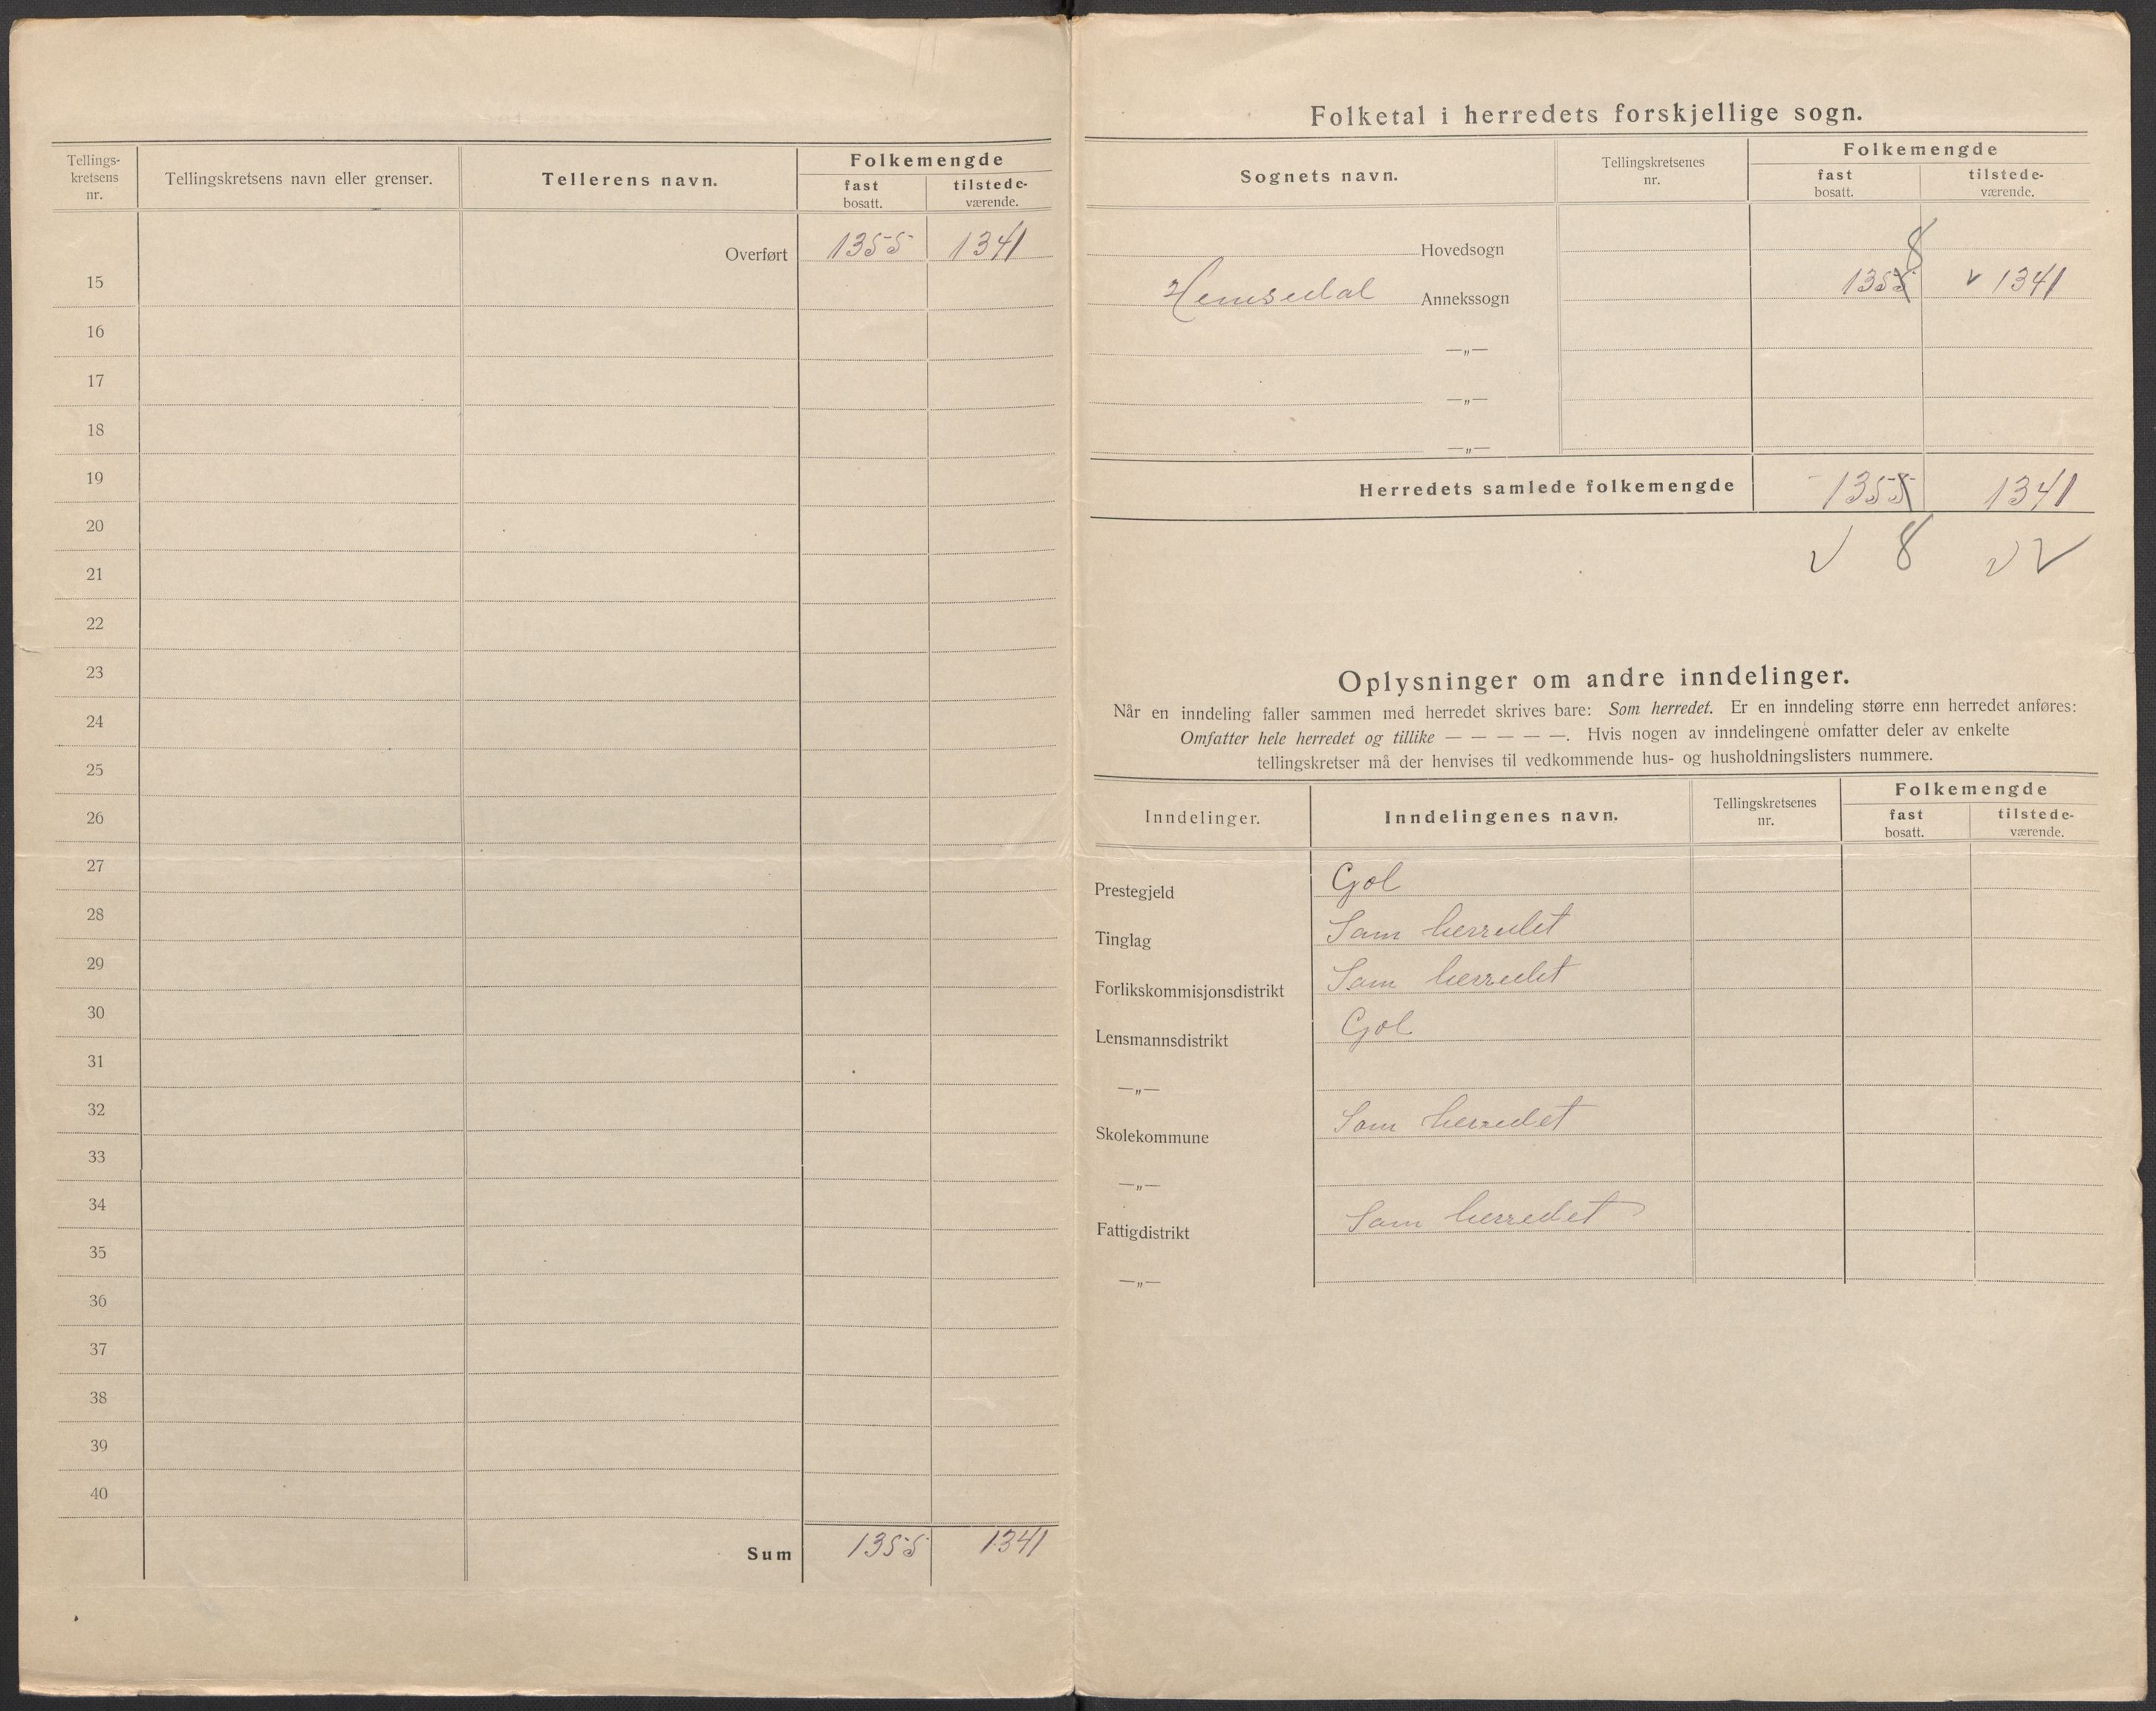 Tellings-
kretsens
nr.
Tellingskretsens navn eller grenser.
Tellerens navn.
Folkemengde
fast
bosatt.
tilstede-
værende.
Overført 1355 1341
15
16
17
18
19
20
21
22
23
24
25
26
27
28
29
30
31
32
33
34
35
36
37
38
39
40
Sum 1355 1341
Folketal i herredets forskjellige sogn.
Sognets navn.
Tellingskretsenes
nr.
Folkemengde
fast
bosatt.
tilstede-
værende.
Hovedsogn
8
Hemsedal Annekssogn 1355 √ 1341
—„—
—„—
—„—
Herredets samlede folkemengde 1355 1341
√ 8 √ √
Oplysninger om andre inndelinger.
Når en inndeling faller sammen med herredet skrives bare: Som herredet. Er en inndeling større enn herredet anføres:
Omfatter hele herredet og tillike — — — — —. Hvis nogen av inndelingene omfatter deler av enkelte
tellingskretser må der henvises til vedkommende hus- og husholdningslisters nummere.
Inndelinger.
Inndelingenes navn.
Tellingskretsenes
nr.
Folkemengde
fast
bosatt.
tilstede-
værende.
Prestegjeld Gol
Tinglag Som herredet
Forlikskommisjonsdistrikt Som herredet
Lensmannsdistrikt Gol
—„—
Skolekommune Som herredet
—„—
Fattigdistrikt Som herredet
—„—